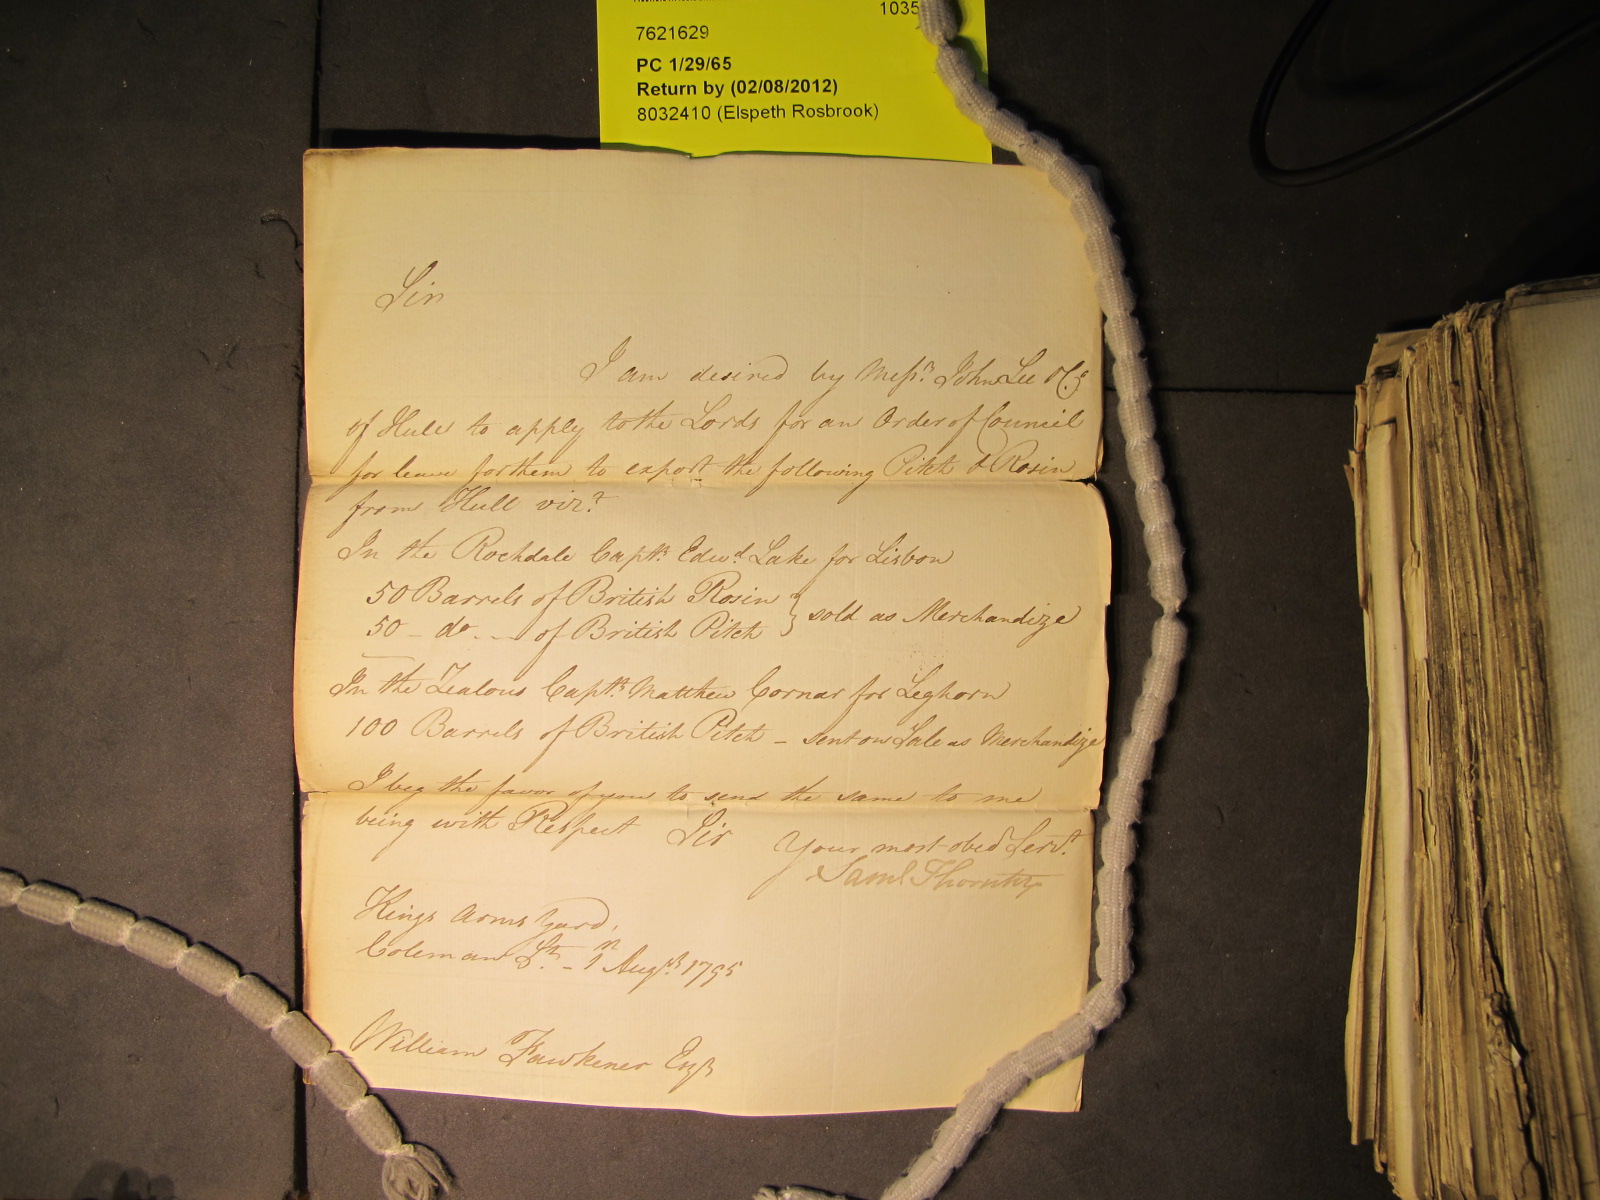 1035
7621629
PC 1/29/65
Return by (02/08/2012)
8032410 (Elspeth Rosbrook)
Sir
I am desired by Messrs. John Lee & Co
of Hull to apply to the Lords for an Order of Council
for leave for them to export the following Pitch & Rosin
from Hull vizt.
In the Rochdale Captn. Edwd. Lake for Lisbon
50 Barrels of British Rosin } sold as Merchandize
50 - do - of British Pitch
In the Zealous Captn. Matthew Cornar for Leghorn
100 Barrels of British Pitch - sent on Sale as Merchandize
I beg the favor of you to send the same to me
being with Respect Sir Your most obed Servt.
Saml Thornton
Kings Arms Yard,
Coleman St. - 1 Augst. 1795
William Fawkener Esqr